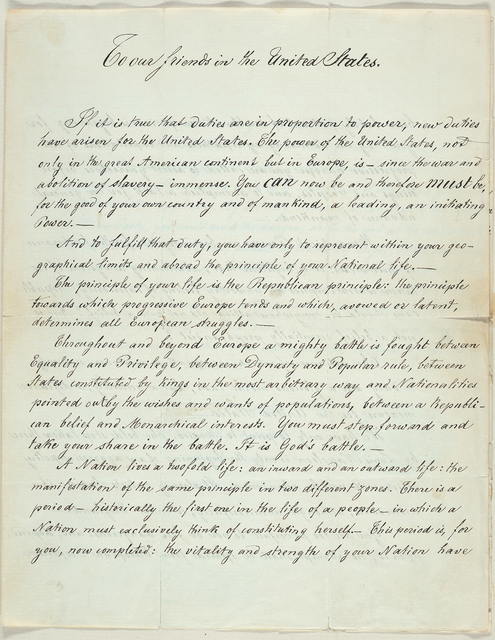 To our friends in the United States.
If it is true that duties are in proportion to power, new duties
have arisen for the United States. The power of the United States, not
only in the great American continent but in Europe, is – since the war and
abolition of slavery – immense. You can now be and therefore must be,
for the good of your own country and of mankind, a leading, an initiating
Power. —
And to fulfill that duty, you have only to represent within your geo-
graphical limits and abroad the principle of your National life. —
The principle of your life is the Republican principle: the principle
towards which progressive Europe tends and which, avowed or latent,
determines all European struggles. —
Throughout and beyond Europe a mighty battle is fought between
Equality and Privilege, between Dynasty and Popular rule, between
States constituted by kings in the most arbitrary way and Nationalities
pointed out by the wishes and wants of populations, between a Republi-
can belief and Monarchical interests. You must step forward and
take your share in the battle. It is God's battle. —
A Nation lives a twofold life: an inward and an outward life: the
manifestation of the same principle in two different zones. There is a
period – historically the first one in the life of a people – in which a
Nation must exclusively think of constituting herself. – This period is, for
you, now completed: the vitality and strength of your Nation have